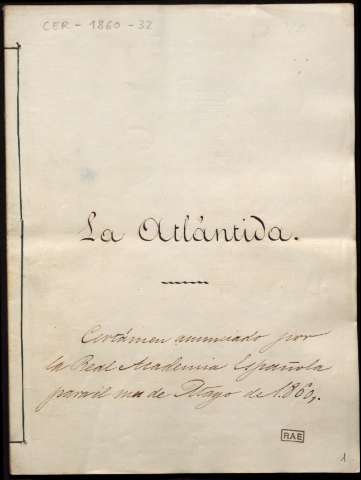 CER - 1860 - 32
La Atlántida.
Certámen anunciado por
la Real Academia Española
para el mes de Mayo de 1860,
RAE
1